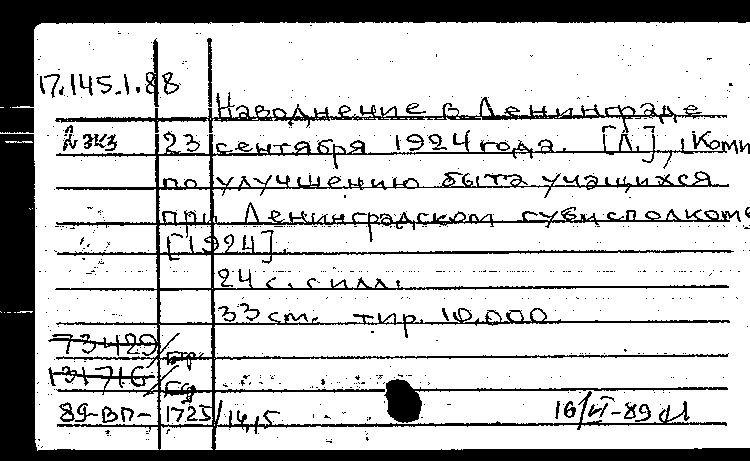 17.145.1.88
Наводнение в Ленинграде
2 экз 23 сентября 1924 года. [Л.], Коми
по улучшению быта учащихся
при Ленинградском губисполкоме
[1924].
24 с. с илл.
33 см. тир. 10.000
73429/
131716/
89-ВП-1725/14,5 16/VI-89